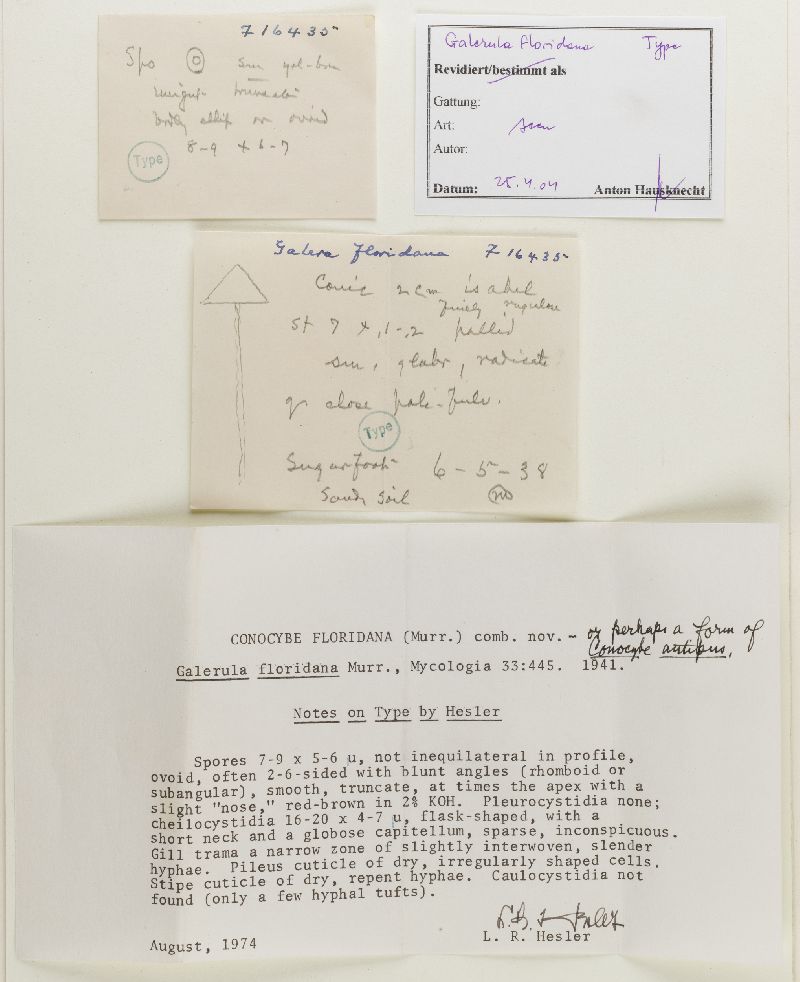 F16435
Spo sm yel-brn
truncate
brdly ellip or ovoid
8-9 x 6-7
Type
Galerula floridana Type
Revidiert/bestimmt als
Gattung:
Art:
Autor:
Datum: 25.4.04 Anton Hausknecht
Galera floridana F16435
Conic 2 cm isabel
finely rugulose
st 7 x .1-.2 pallid
sm, glabr, radicate
g close pale-fulv.
Type
Sugarfoot 6-5-38
Sandy soil
CONOCYBE FLORIDANA (Murr.) comb. nov. - or perhaps a form of
Conocybe antipus.
Galerula floridana Murr., Mycologia 33:445. 1941.
Notes on Type by Hesler
Spores 7-9 x 5-6 µ, not inequilateral in profile,
ovoid, often 2-6-sided with blunt angles (rhomboid or
subangular), smooth, truncate, at times the apex with a
slight "nose," red-brown in 2% KOH. Pleurocystidia none;
cheilocystidia 16-20 x 4-7 µ, flask-shaped, with a
short neck and a globose capitellum, sparse, inconspicuous.
Gill trama a narrow zone of slightly interwoven, slender
hyphae. Pileus cuticle of dry, irregularly shaped cells.
Stipe cuticle of dry, repent hyphae. Caulocystidia not
found (only a few hyphal tufts).
L. R. Hesler
August, 1974 L. R. Hesler